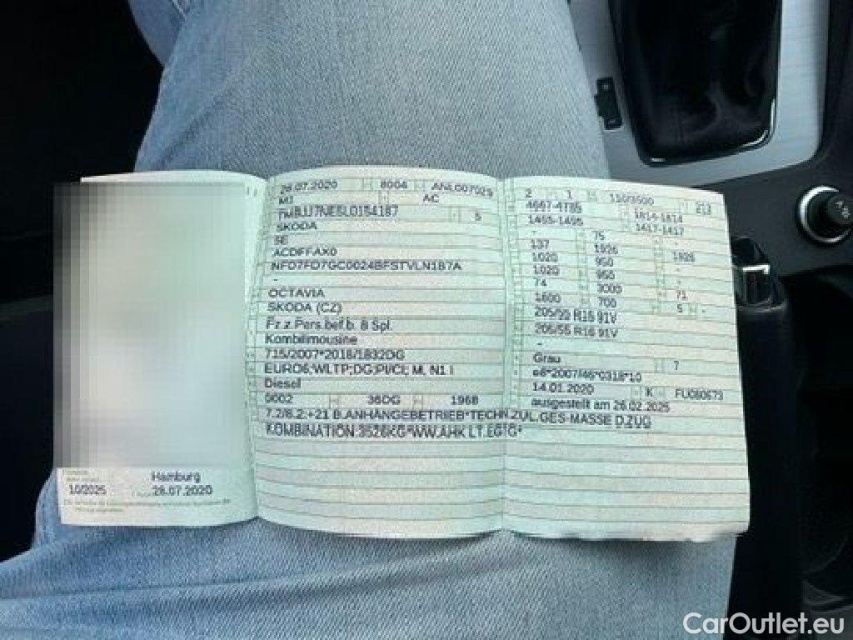 Hamburg
10/2025
28.07.2020
28.07.2020 8004
M1 AC
5
SKODA
5E
ACDFFAX0
NFD7FD7GC0024BFSTVLN1B7A
-
OCTAVIA
SKODA (CZ)
Fz.z.Pers.bef.b. 8 Spl.
Kombilimousine
715/2007*2018/1832DG
EURO6;WLTP;DG;PI/CI; M, N1 I
Diesel
36DG 1968
7.2/8.2:+21 B.ANHÄNGEBETRIEB*TECHN.ZUL.GES-MASSE D.ZUG
KOMBINATION:3526KG*WW.AHK LT.EG-G*
2 1 213
1814-1814
1465-1495 1417-1417
- 75 -
137 1926 1926
1020 950 -
1020 950 -
74 3000 71
1600 700 5 -
205/55 R16 91V
205/55 R16 91V
-
Grau 7
e8*2007/46*0318*10
14.01.2020 K
ausgestellt am 26.02.2025
CarOutlet.eu